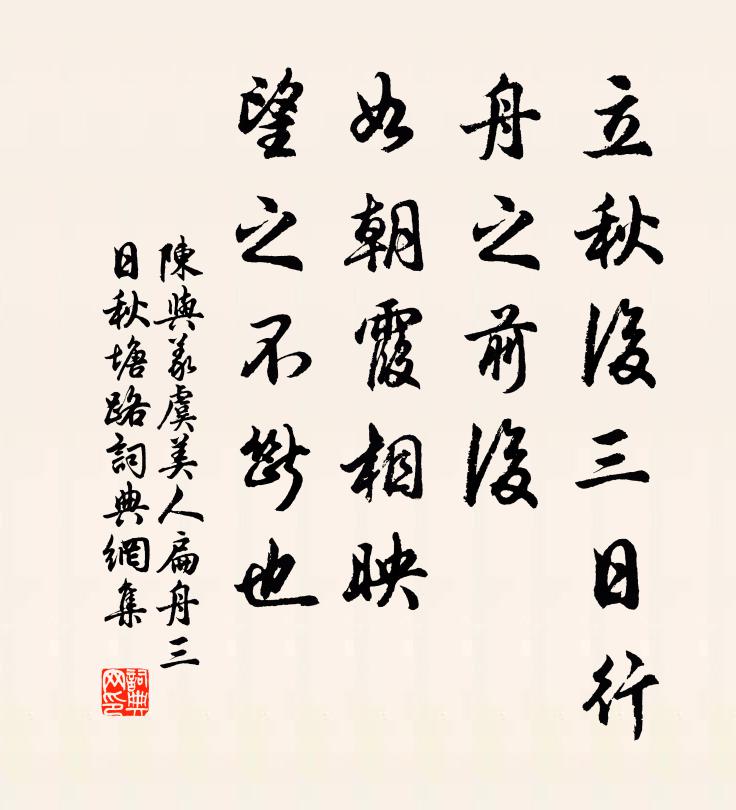 立秋後三日行
舟之前後
如朝霞相映
望之不斷也
陳與義虞美人扁舟三
日秋塘路詞典網集
詞典网印